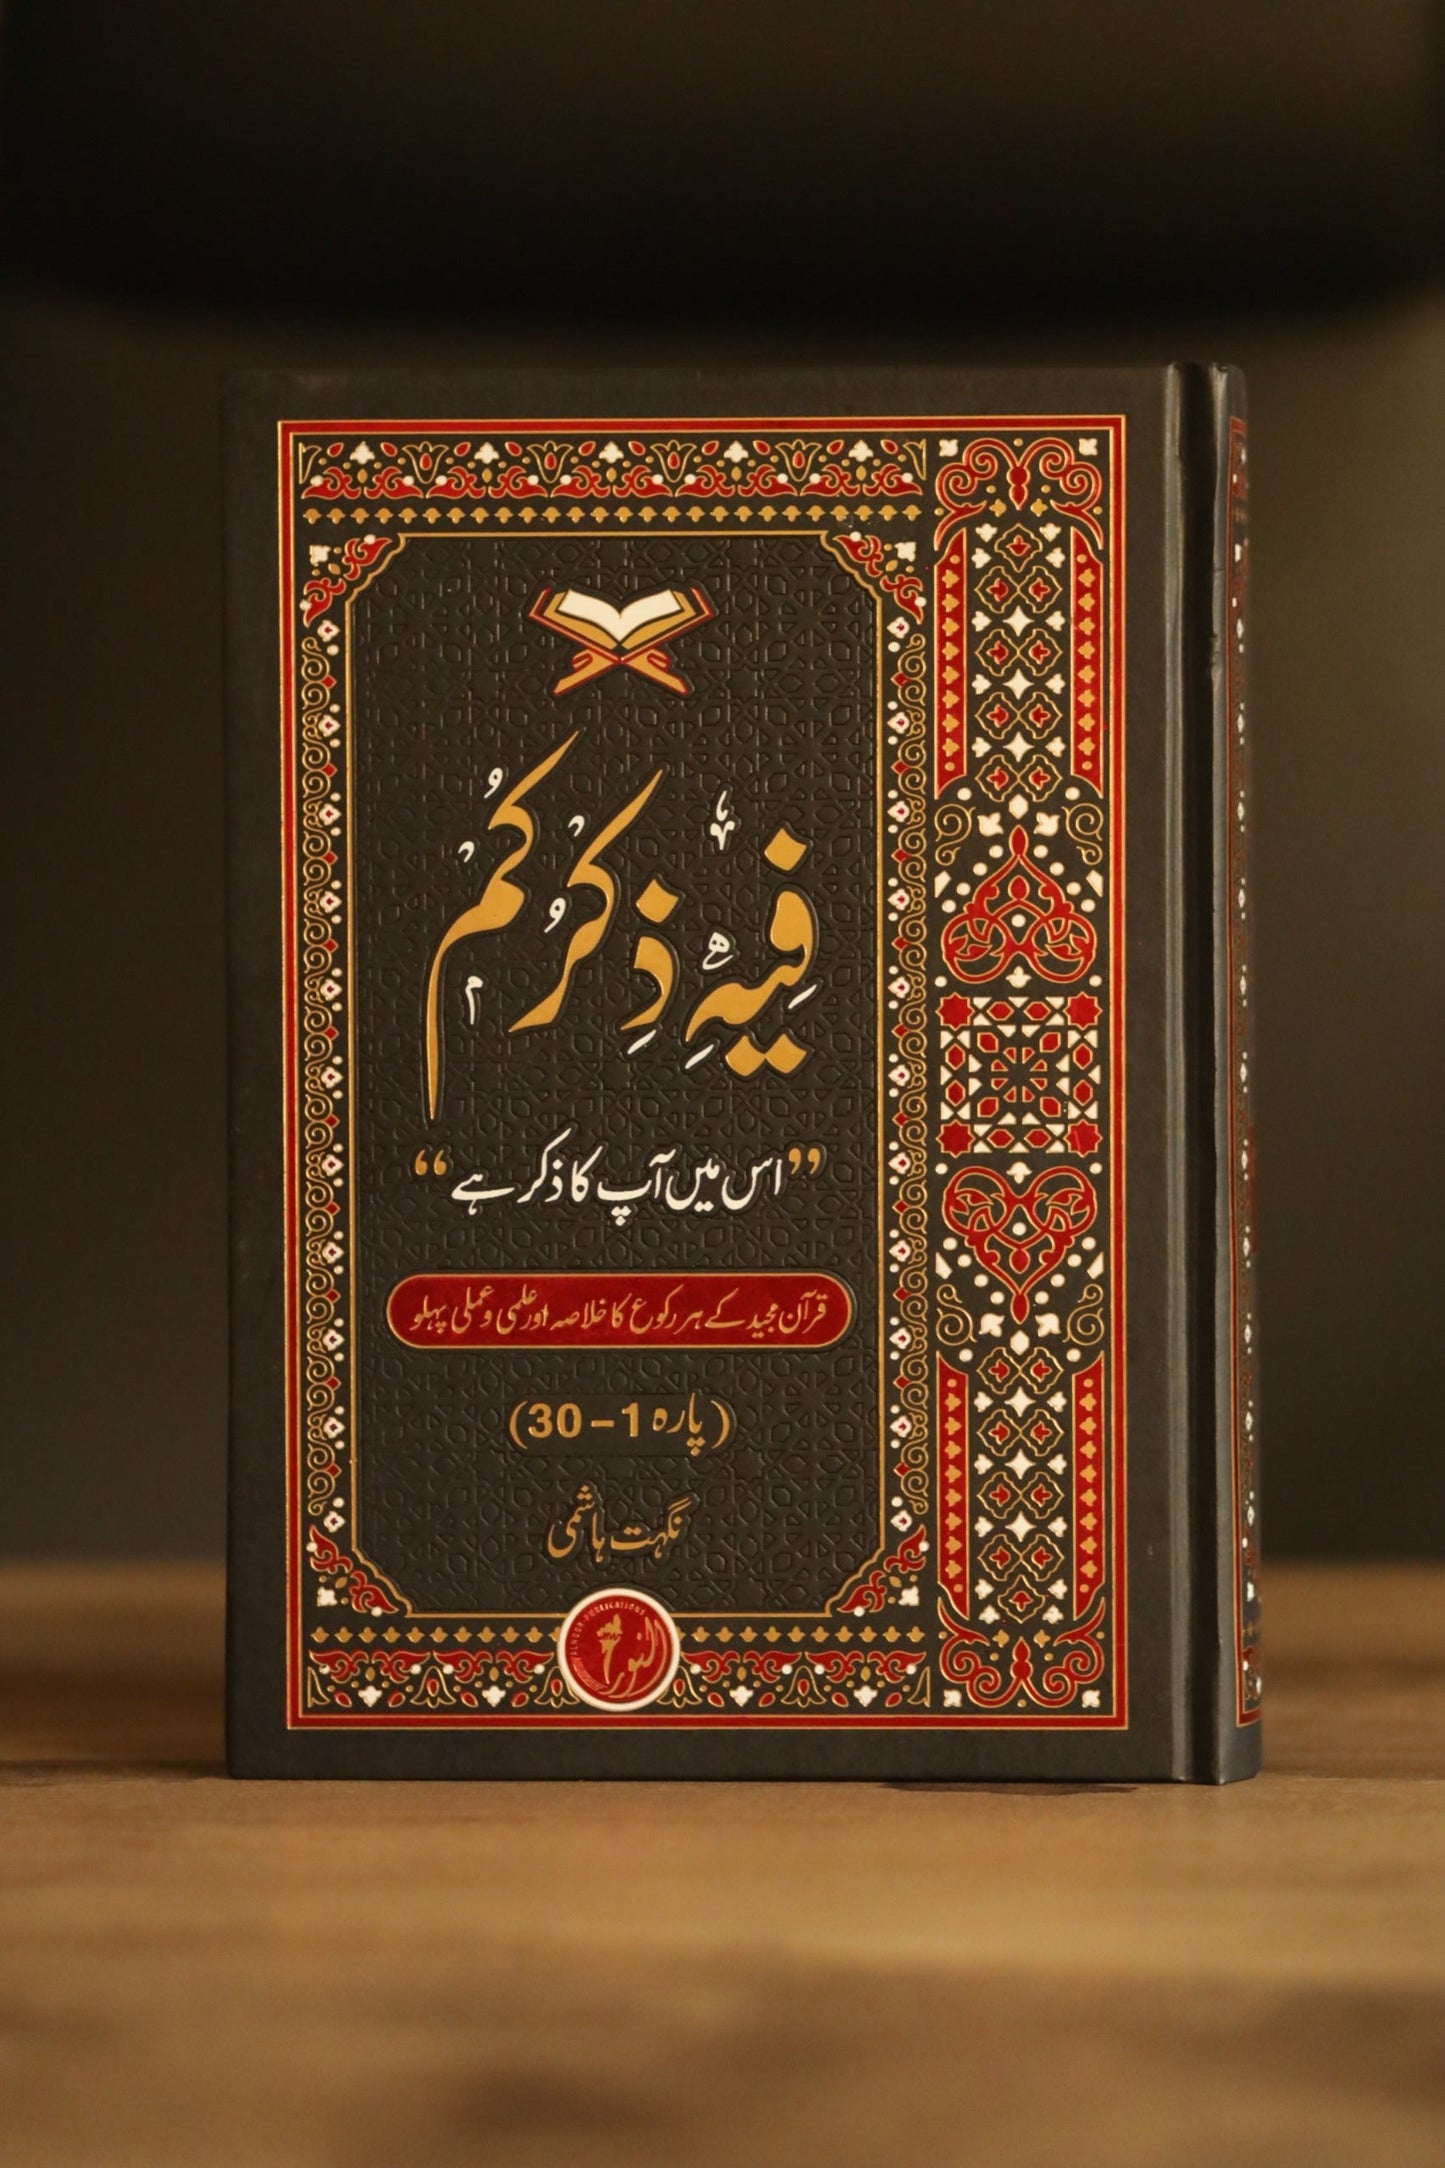 فِيْهِ ذِكْرُكُمْ
”اس میں آپ کا ذکر ہے“
قرآن مجید کے ہر رکوع کا خلاصہ اور علمی و عملی پہلو
(پارہ 1 – 30)
نگہت ہاشمی
ALNOOR PUBLICATIONS
النور